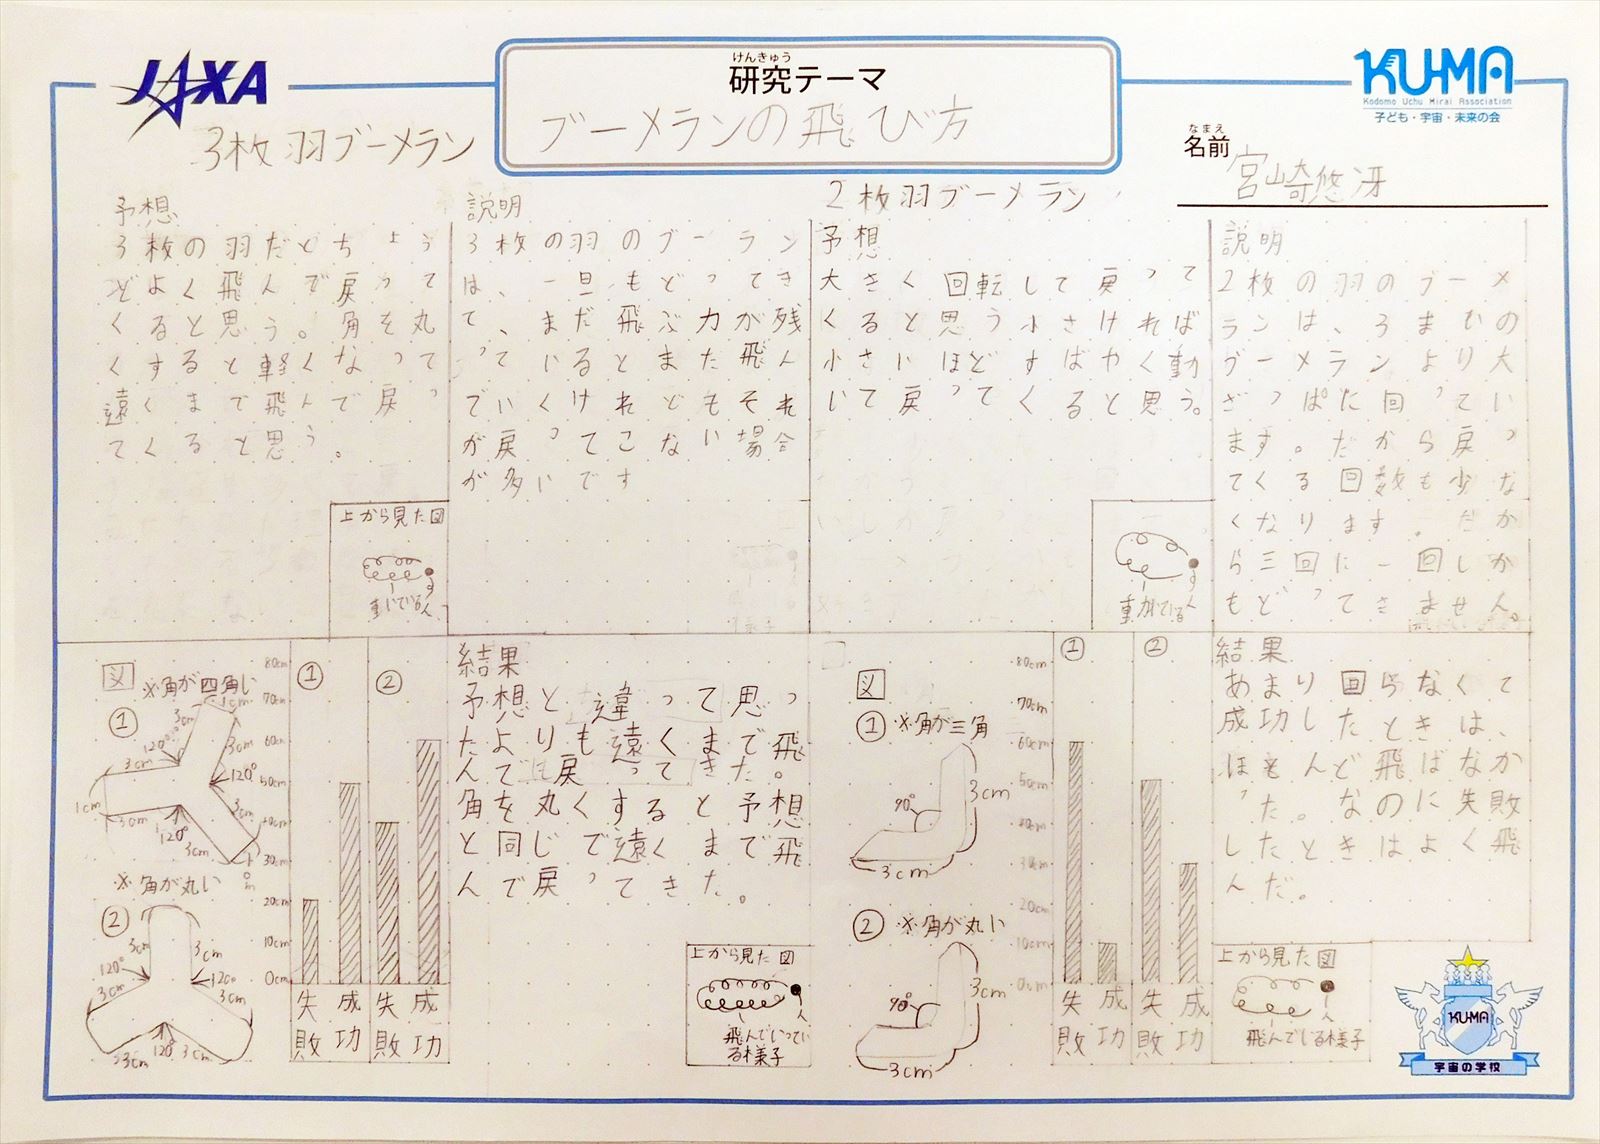 JAXA
けんきゅう
研究テーマ
ブーメランの飛び方
KU-MA
Kodomo Uchu Mirai Association
子ども・宇宙・未来の会
なまえ
名前
宮崎悠冴
3枚羽ブーメラン
予想
3枚の羽だとちょう
どよく飛んで戻って
くると思う。角を丸
くすると軽くなって
遠くまで飛んで戻っ
てくると思う。
上から見た図
動いている人
説明
3枚の羽のブーラン
は、一旦もどってき
て、まだ飛ぶ力が残
っているとまた飛ん
でいくけれどもそれ
が戻ってこない場合
が多いです
図
※角が四角い
①
1cm
3cm
3cm
120°
3cm
120°
1cm
3cm
120°
3cm
3cm
1cm
※角が丸い
②
3cm
3cm
120°
120°
3cm
3cm
120°
3cm
3cm
80cm
70cm
60cm
50cm
40cm
30cm
20cm
10cm
0cm
①
②
失敗
成功
失敗
成功
結果
予想と違って思っ
たよりも遠くまで飛
んで戻ってきた。
角を丸くすると予想
と同じで遠くまで飛
んで戻ってきた。
上から見た図
人
飛んでいってい
る様子
2枚羽ブーメラン
予想
大きく回転して戻って
くると思う小さければ
小さいほどすばやく動
いて戻ってくると思う。
説明
2枚の羽のブーメ
ランは、3まいの
ブーメランより大
ざっぱた回ってい
ます。だから戻っ
てくる回数も少な
くなります。だか
ら三回に一回しか
もどってきません。
図
①
※角が三角
90°
3cm
3cm
②
※角が丸い
90°
3cm
3cm
80cm
70cm
60cm
50cm
40cm
30cm
20cm
10cm
0cm
①
②
失敗
成功
失敗
成功
結果
あまり回らなくて
成功したときは、
ほとんど飛ばなか
った。なのに失敗
したときはよく飛
んだ。
上から見た図
人
飛んでいる様子
KU-MA
宇宙の学校